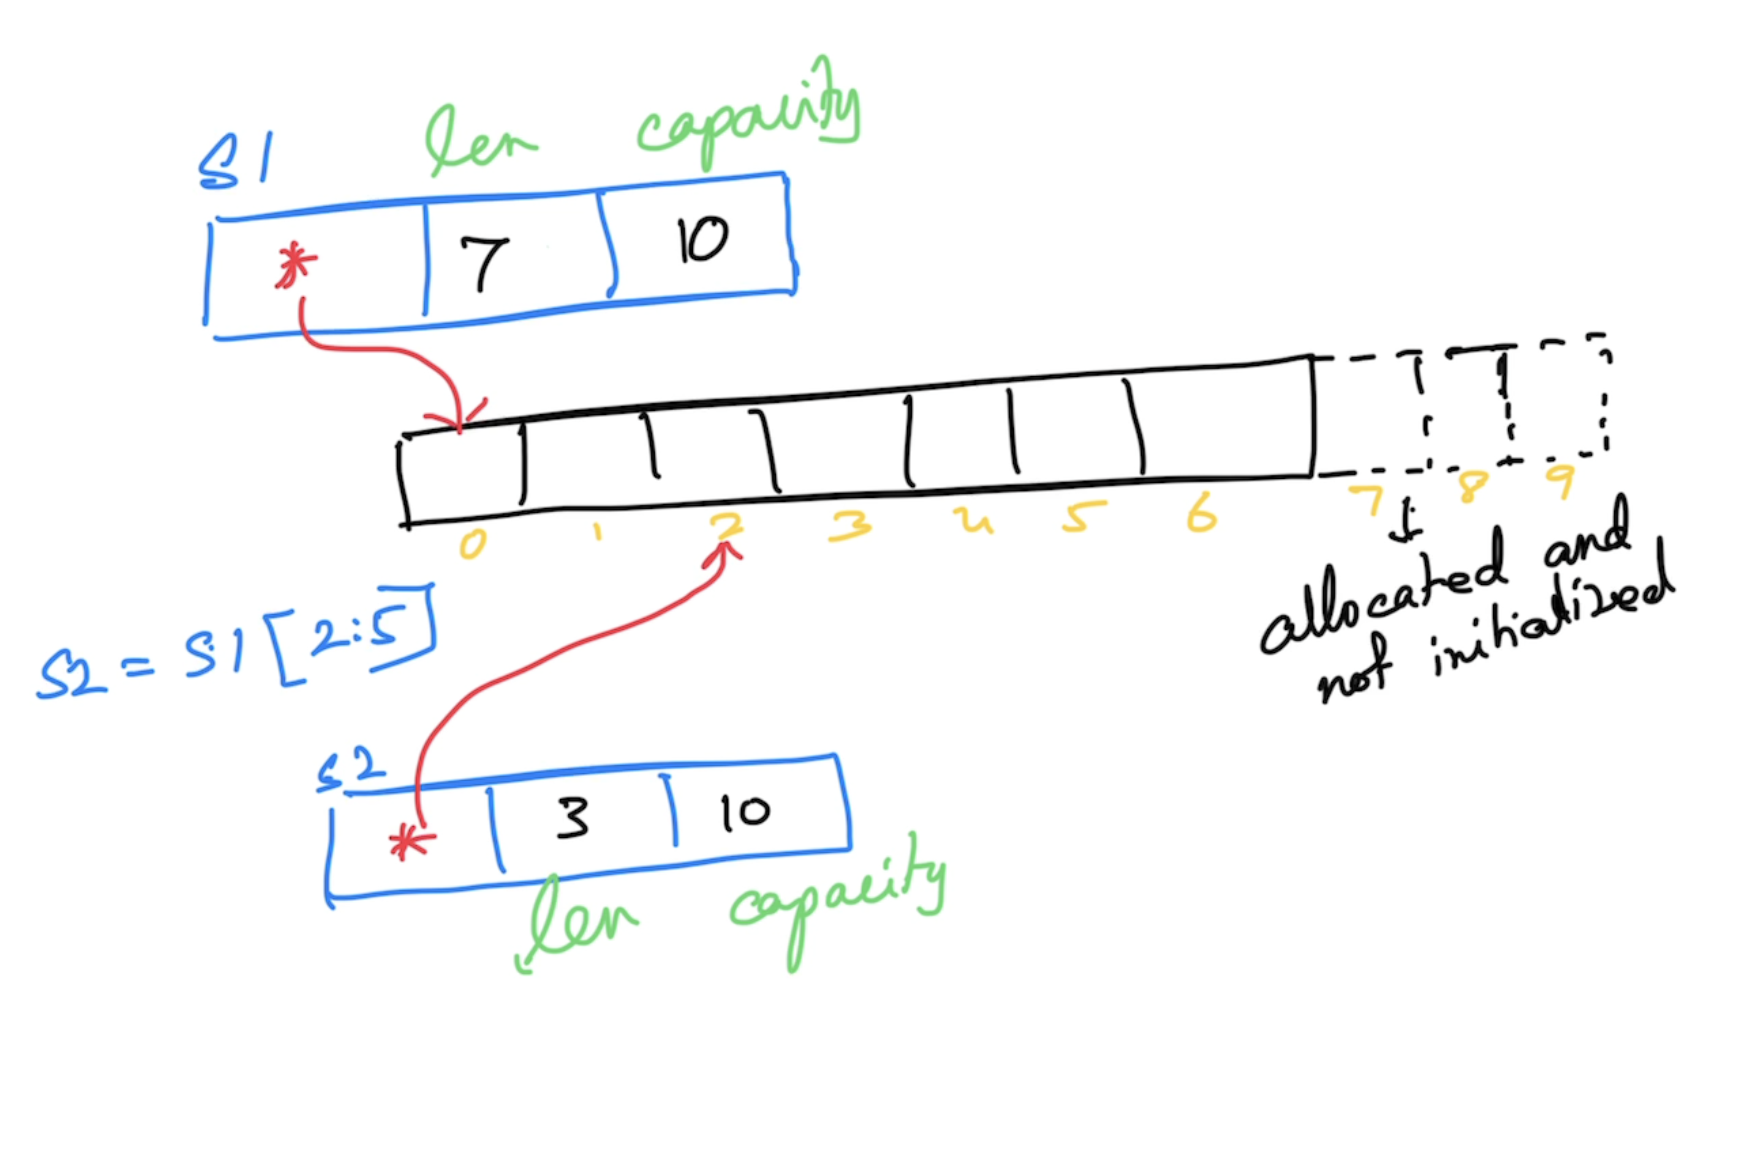 S1 len capacity
* 7 10
0 1 2 3 4 5 6 7 8 9
allocated and
not initialized
S2 = S1[2:5]
S2
* 3 10
len capacity